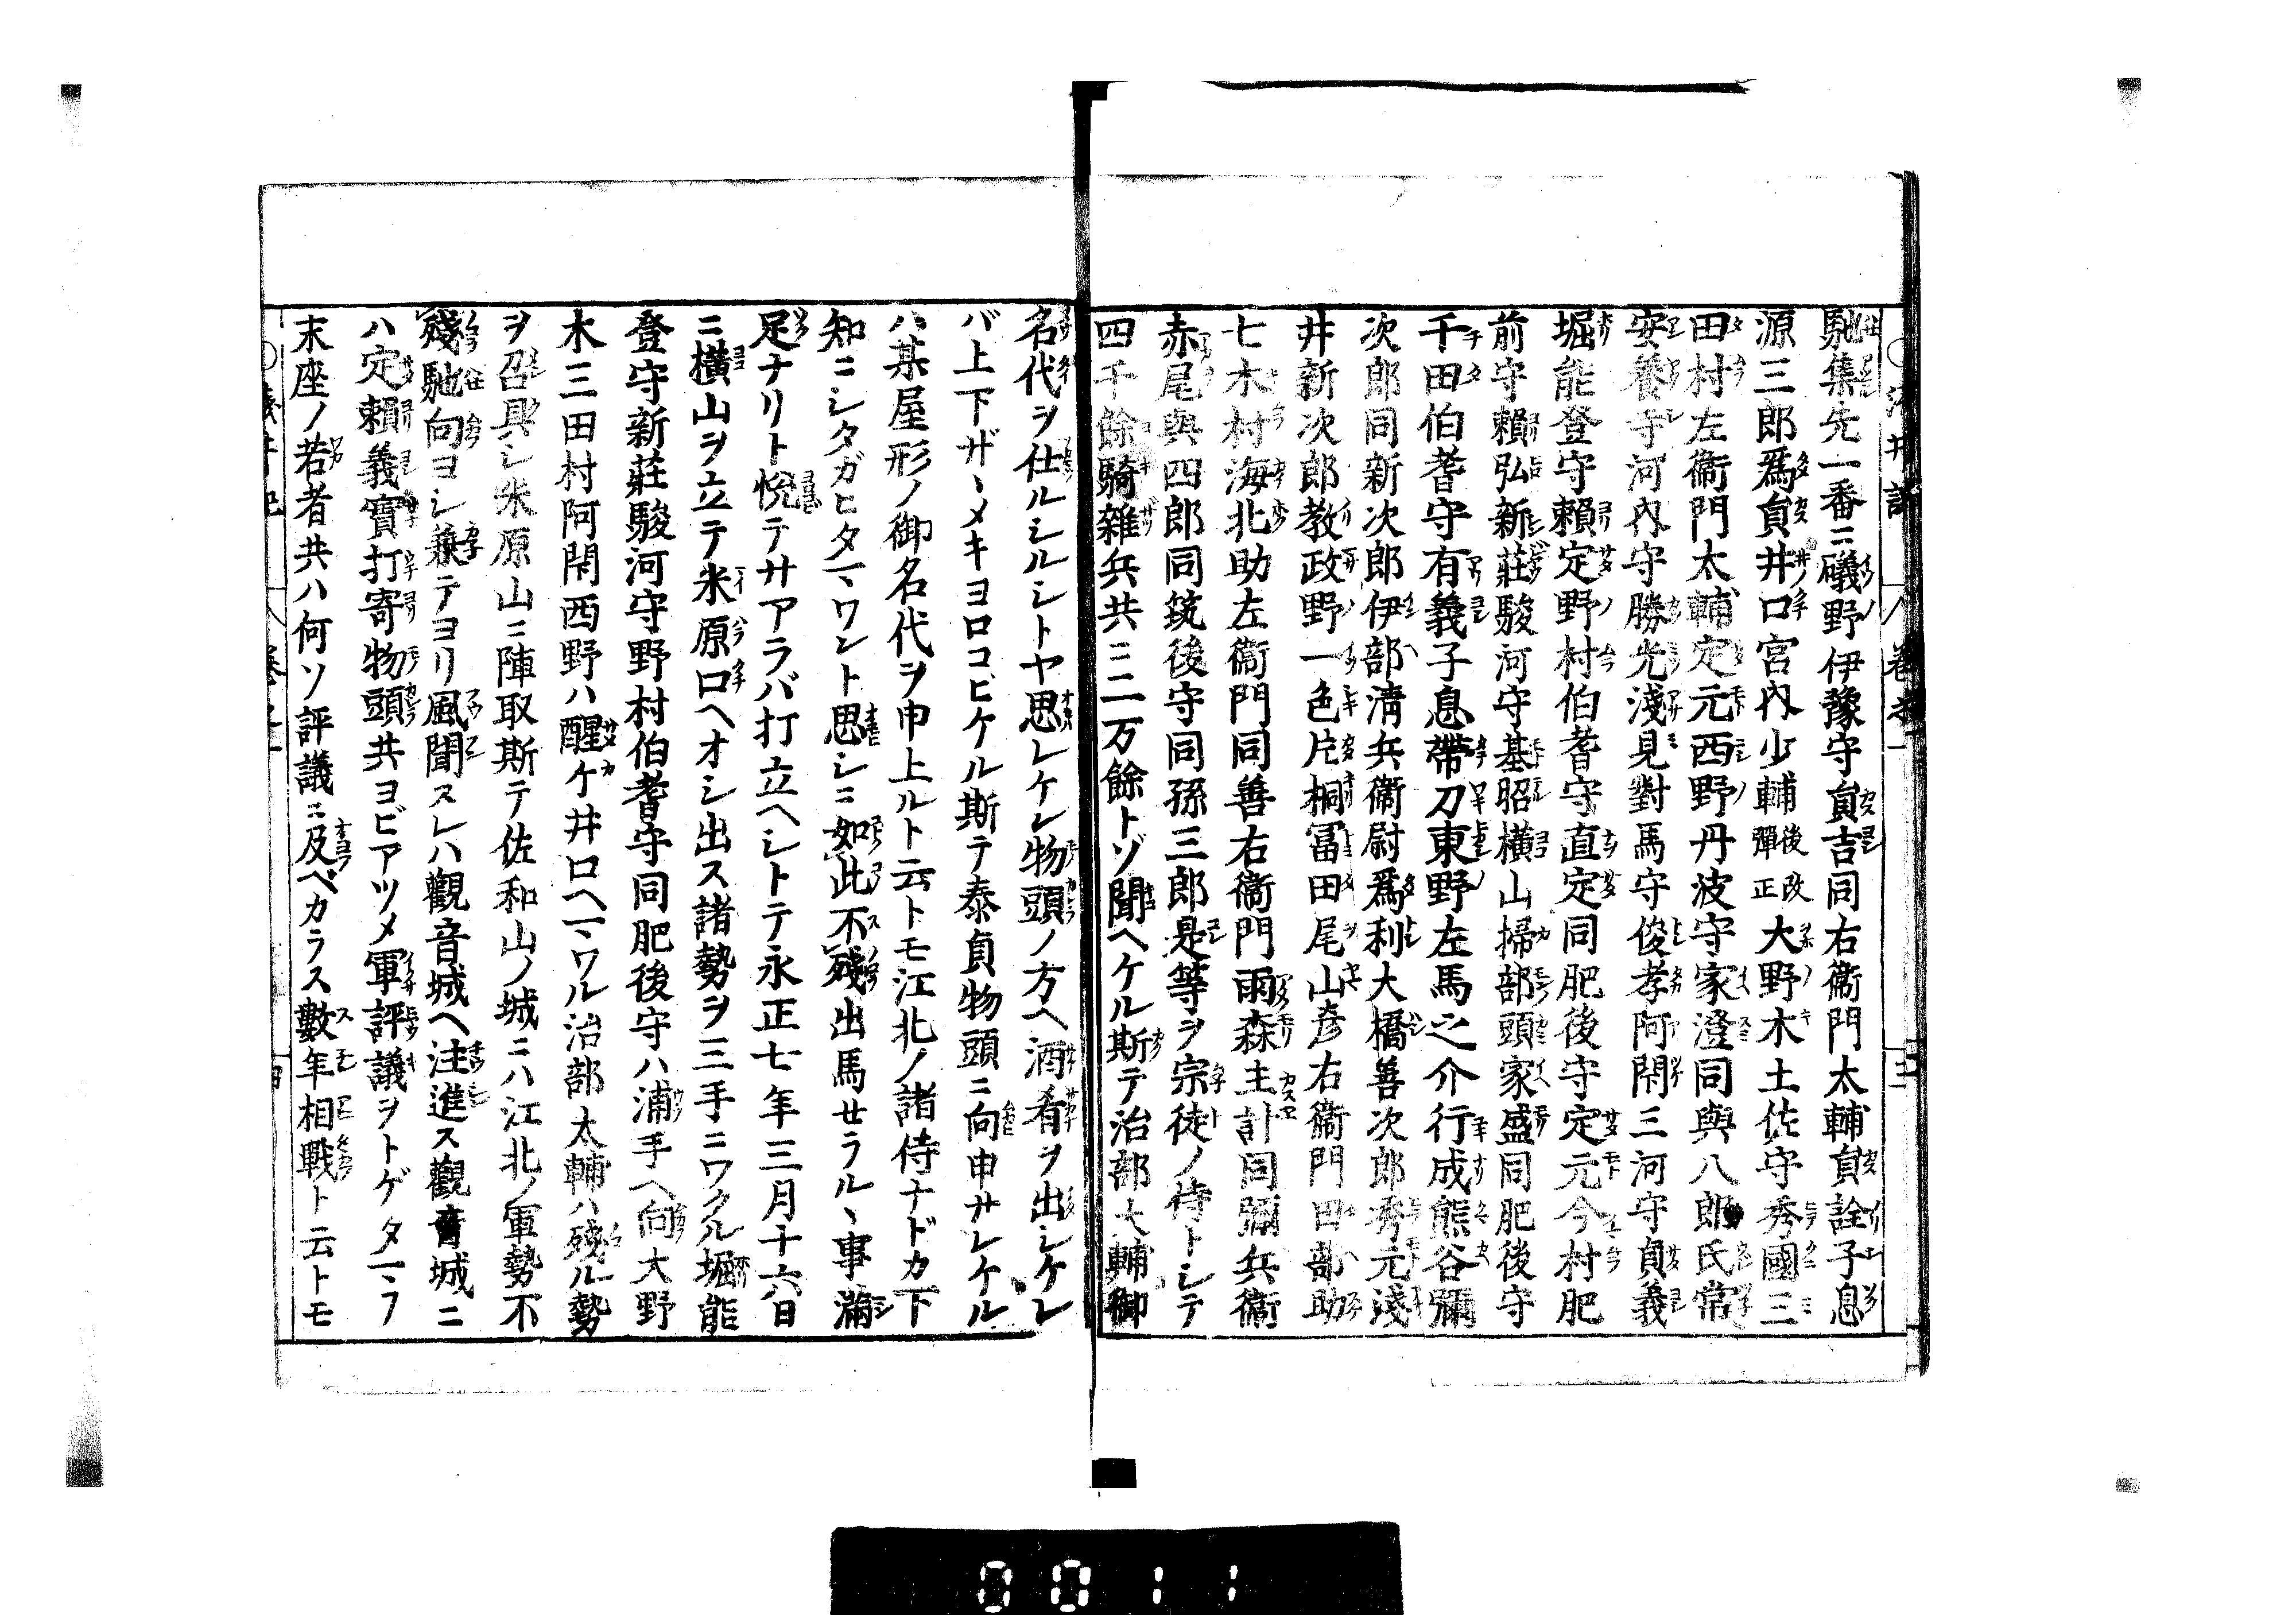 馳集先一番ニ礒野伊豫守貟吉同右衞門太輔貟詮子息
源三郎爲貟井口宮内少輔後改彈正大野木土佐守秀國三
田村左衞門太輔定元西野丹波守家澄同與八郎氏常
安養寺河内守勝光淺見對馬守俊孝阿閇三河守貞義
堀能登守賴定野村伯耆守直定同肥後守定元今村肥
前守賴弘新莊駿河守基昭横山掃部頭家盛同肥後守
千田伯耆守有義子息帶刀東野左馬之介行成熊谷彌
次郎同新次郎伊部淸兵衞尉爲利大橋善次郎秀元淺
井新次郎教政野一色片桐冨田尾山彦右衞門田部助
七木村海北助左衞門同善右衞門雨森主計同彌兵衞
赤尾與四郎同筑後守同孫三郎是等ヲ宗徒ノ侍トシテ
四千餘騎雜兵共ニ二万餘トゾ聞ヘケル斯テ治部大輔御
名代ヲ仕ルシルシトヤ思レケレ物頭ノ方ヘ酒肴ヲ出シケレ
バ上下ザヽメキヨロコビケル斯テ泰貞物頭ニ向申サレケル
ハ某屋形ノ御名代ヲ申上ルト云トモ江北ノ諸侍ナドカ下
知ニシタガヒタマヽワント思シニ如此不殘出馬せラルヽ事滿
足ナリト悅テサアラバ打立ヘシトテ永正七年三月十六日
ニ横山ヲ立テ米原口ヘオシ出ス諸勢ヲ三手ニワクル堀能
登守新莊駿河守野村伯耆守同肥後守ハ浦手ヘ向大野
木三田村阿閇西野ハ醒ケ井口ヘマヽワル治部太輔ハ殘ル勢
ヲ召具シ米原山ニ陣取斯テ佐和山ノ城ニハ江北ノ軍勢不
殘馳向ヨシ兼テヨリ風聞スレハ觀音城ヘ注進ス觀音城ニ
ハ定賴義實打寄物頭共ヨビアツメ軍評議ヲトゲタマヽフ
末座ノ若者共ハ何ソ評議ニ及ベカラス數年相戰ト云トモ
0011